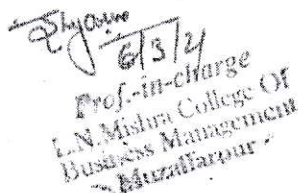 6/3/21
Prof.-in-charge
L.N.Mishra College Of
Business Management
Muzaffarpur